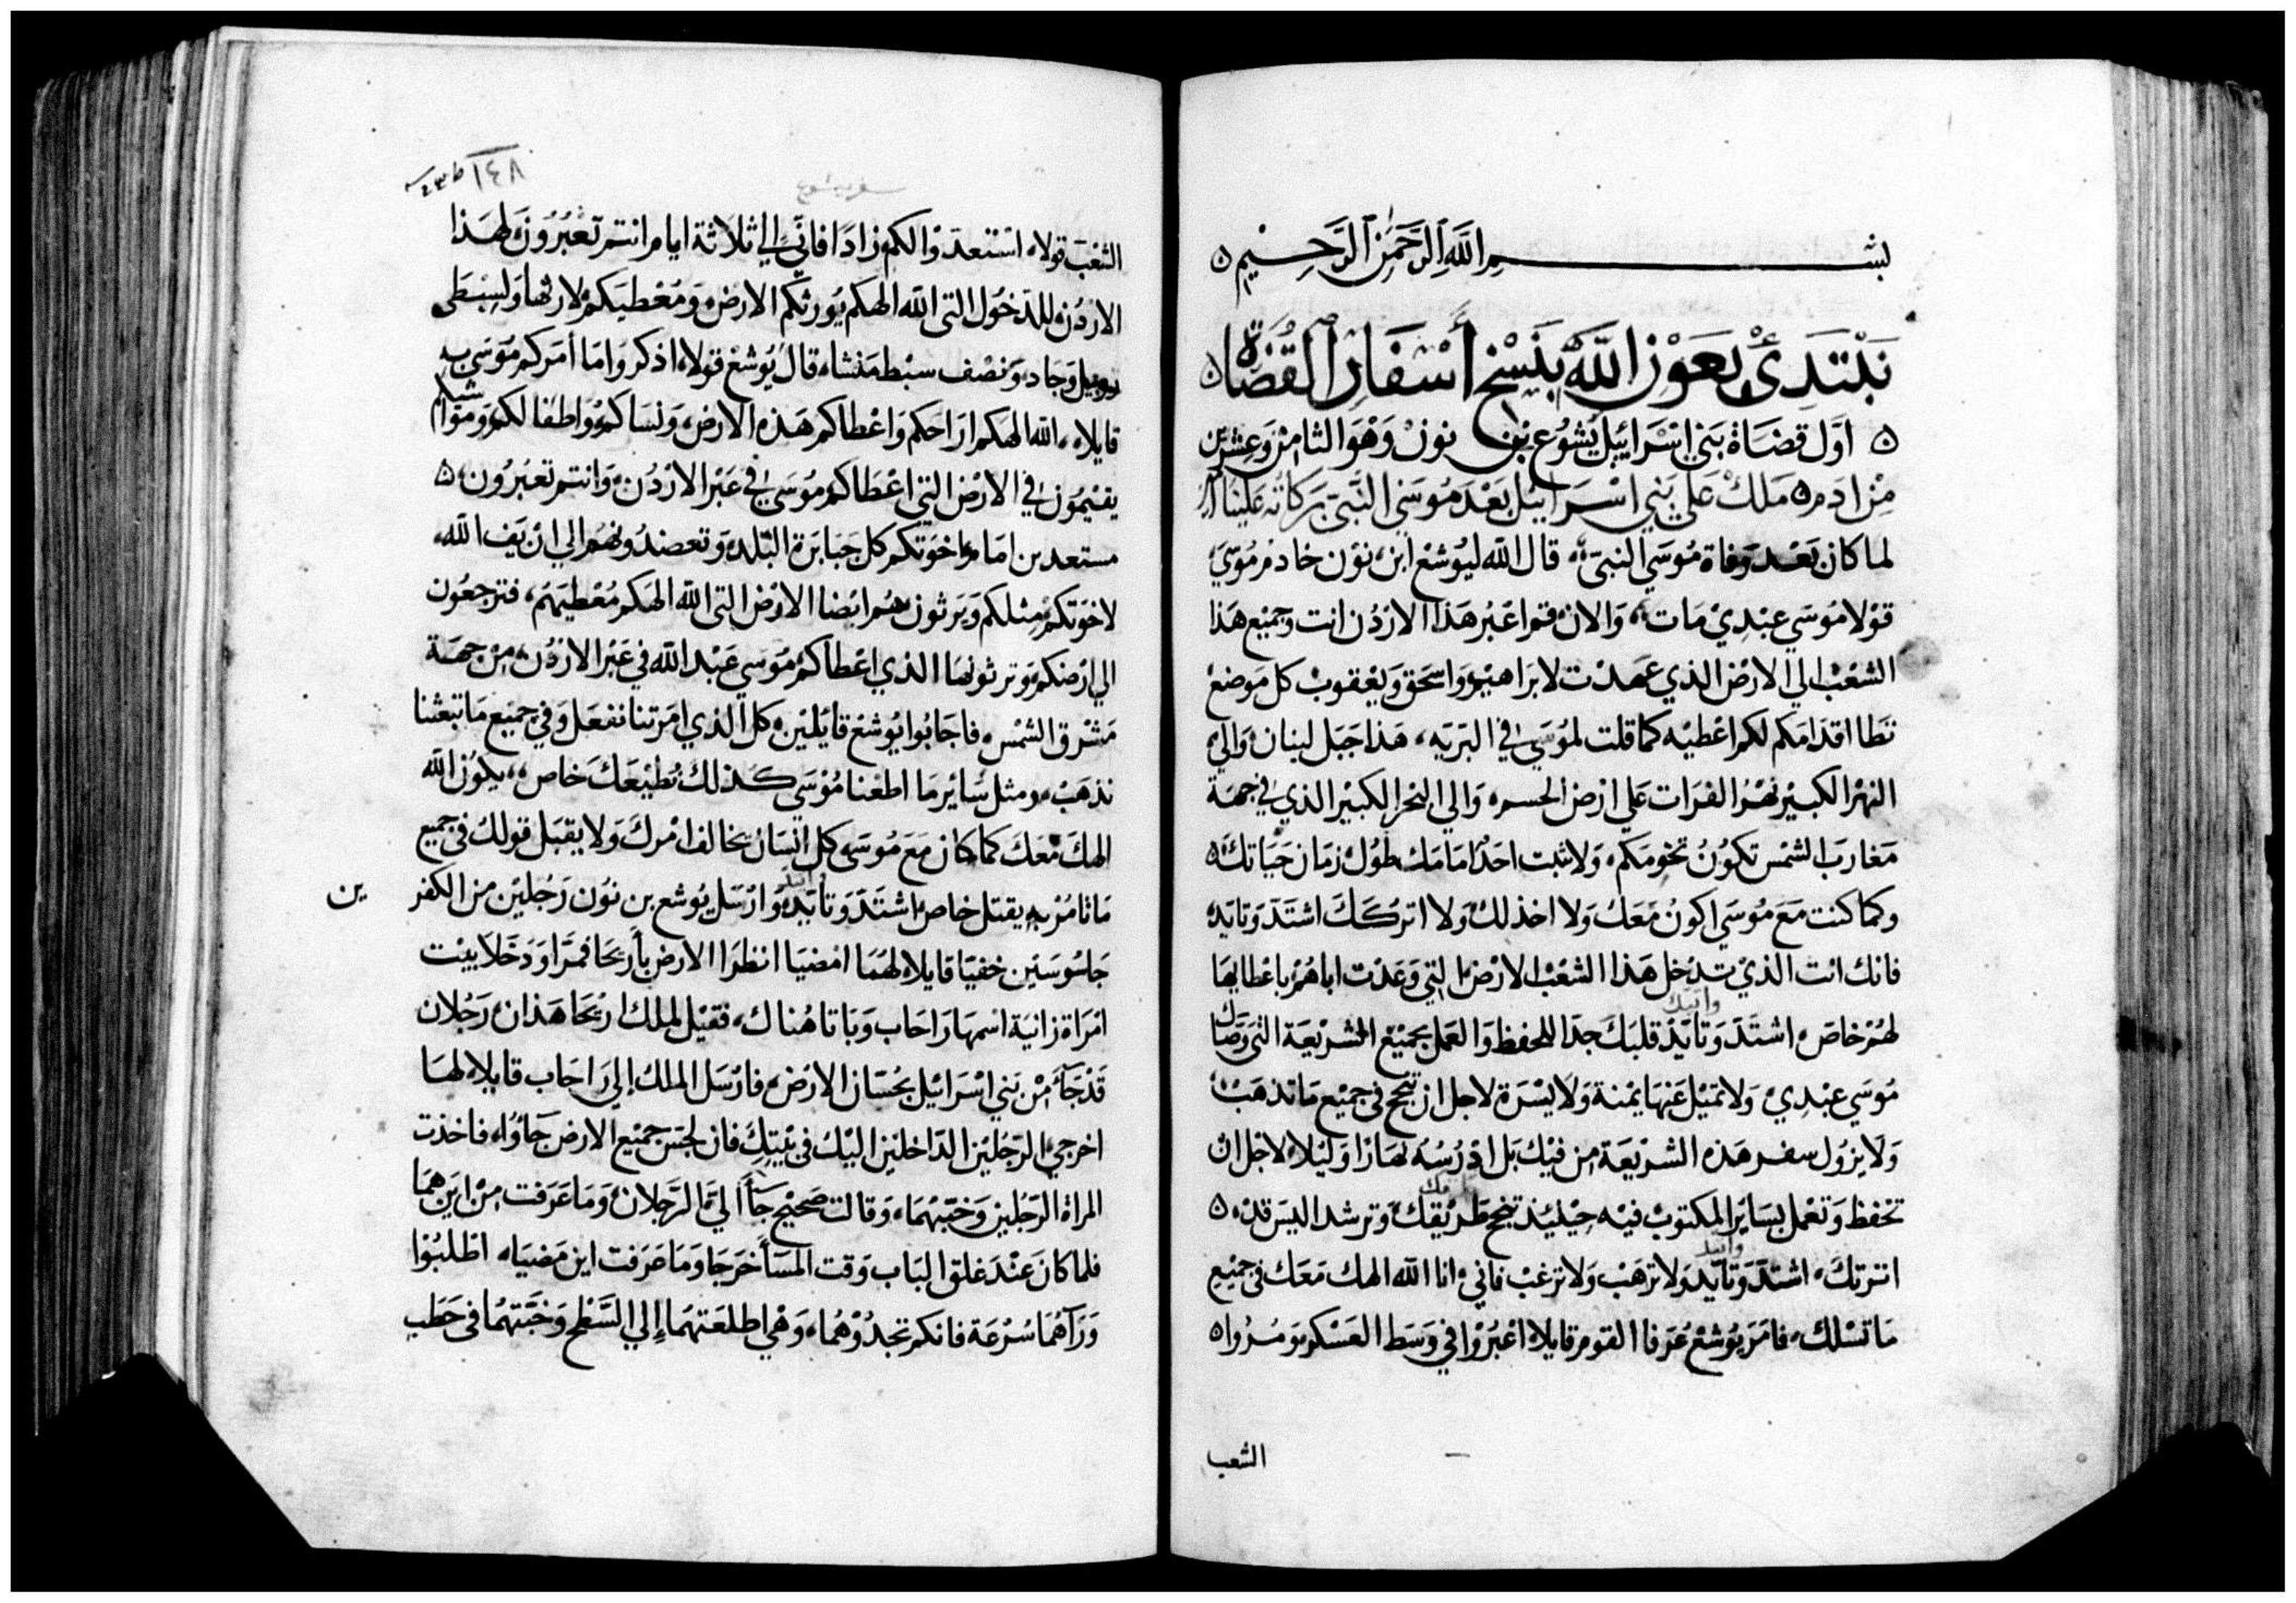 بسم الله الرحمن الرحيم
نبتدئ بعون الله بنسخ أسفار القضاة
اول قضاة بني اسرائيل يشوع بن نون وهو الثامن وعشرين
من ادم ملك على بني اسرائيل بعد موسى النبي بركاته علينا امين
لما كان بعد وفاة موسي النبي قال الله ليوشع ابن نون خادم موسي
قولا موسي عبدي مات والان قم اعبر هذا الاردن انت وجميع هذا
الشعب الي الارض الذي عهدت لابراهيم واسحق ويعقوب كل موضع
تطا اقدامكم لكم اعطيه كما قلت لموسي في البريه هذا جبل لبنان والي
النهر الكبير نهر الفرات علي ارض الحسر والي البحر الكبير الذي في جهة
مغارب الشمس تكون تخومكم ولا يثبت احد امامك طول زمان حياتك
وكما كنت مع موسي اكون معك ولا اخذلك ولا اتركك اشتد وتايد
فانك انت الذي تدخل هذا الشعب الارض التي وعدت اباهم باعطايها
لهم خاص اشتد وتايد قلبك جدا للحفظ والعمل بجميع الشريعة التي وصاك
موسي عبدي ولا تميل عنها يمنة ولا يسرة لاجل ان تنجح في جميع ما تذهب
ولا يزول سفر هذه الشريعة من فيك بل ادرسه نهارا وليلا لاجل ان
تحفظ وتعمل بساير المكتوب فيه حينيذ تنجح طريقك وترشد اليس قد
امرتك اشتد وتايد ولا ترهب ولا ترعب فاني انا الله الهك معك في جميع
ما تسلك فامر يوشع عرفا القوم قايلا اعبروا في وسط العسكر ومروا
الشعب
١٤٨
سفر يشوع
الشعب قولا استعدوا لكم زادا فاني الي ثلاثة ايام انتم تعبرون لهذا
الاردن للدخول التي الله الهكم يورثكم الارض ومعطيكم لارثها ولسبطي
روبيل وجاد ونصف سبط منشا قال يوشع قولا اذكروا ما أمركم موسي به
قايلا الله الهكم اراحكم واعطاكم هذه الارض ونساكم واطفالكم ومواشيكم
يقيمون في الارض التي اعطاكم موسي في عبر الاردن وانتم تعبرون
مستعدين امام اخوتكم كل جبابرة البلد وتعضدونهم الي ان يقف الله
لاخوتكم مثلكم ويرثون هم ايضا الارض التي الله الهكم معطيهم فترجعون
الي ارضكم وترثونها الذي اعطاكم موسي عبد الله في عبر الاردن من جهة
مشرق الشمس فاجابوا يوشع قايلين كل الذي امرتنا نفعل وفي جميع ما تبعثنا
نذهب ومثل ساير ما اطعنا موسي كذلك نطيعك خاص يكون الله
الهك معك كما كان مع موسي كل انسان يخالف امرك ولا يقبل قولك في جميع
ما تامر به يقتل خاص اشتد وتايد وارسل يوشع بن نون رجلين من الكفر
ين
جاسوسين خفيا قايلا لهما امضيا انظرا الارض بأريحا فمرا ودخلا بيت
امراة زانية اسمها راحاب وباتا هناك فقيل لملك اريحا هذان رجلان
قد جآء من بني اسرائيل بجسان الارض فارسل الملك إلي راحاب قايلا لها
اخرجي الرجلين الداخلين اليك في بيتك فان لجس جميع الارض جاؤا فاخذت
المراة الرجلين وخبتهما وقالت صحيح جاأ الي الرجلان وما عرفت من اين هما
فلما كان عند غلق الباب وقت المسأ خرجا وما عرفت اين مضيا اطلبوا
ورآهما سرعة فانكم تجدوهما وهي اطلعتهما إلي السطح وخبتهما في حطب